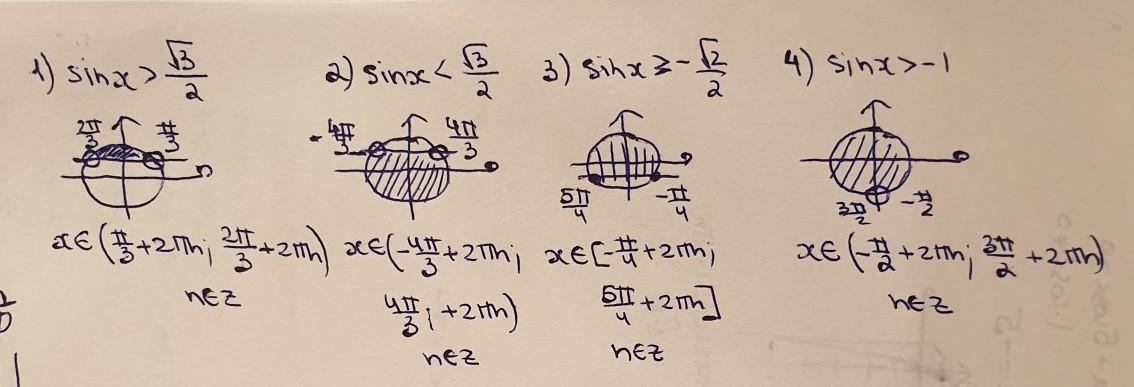 1) sinx > √3/2
2π/3 π/3
x∈(π/3+2πn; 2π/3+2πn)
n∈z
2) sinx < √3/2
-4π/3 4π/3
x∈(-4π/3+2πn;
4π/3; +2πn)
n∈z
3) sinx ≥ -√2/2
5π/4 -π/4
x∈[-π/4+2πn;
5π/4+2πn]
n∈z
4) sinx > -1
3π/2 -π/2
x∈(-π/2+2πn; 3π/2+2πn)
n∈z